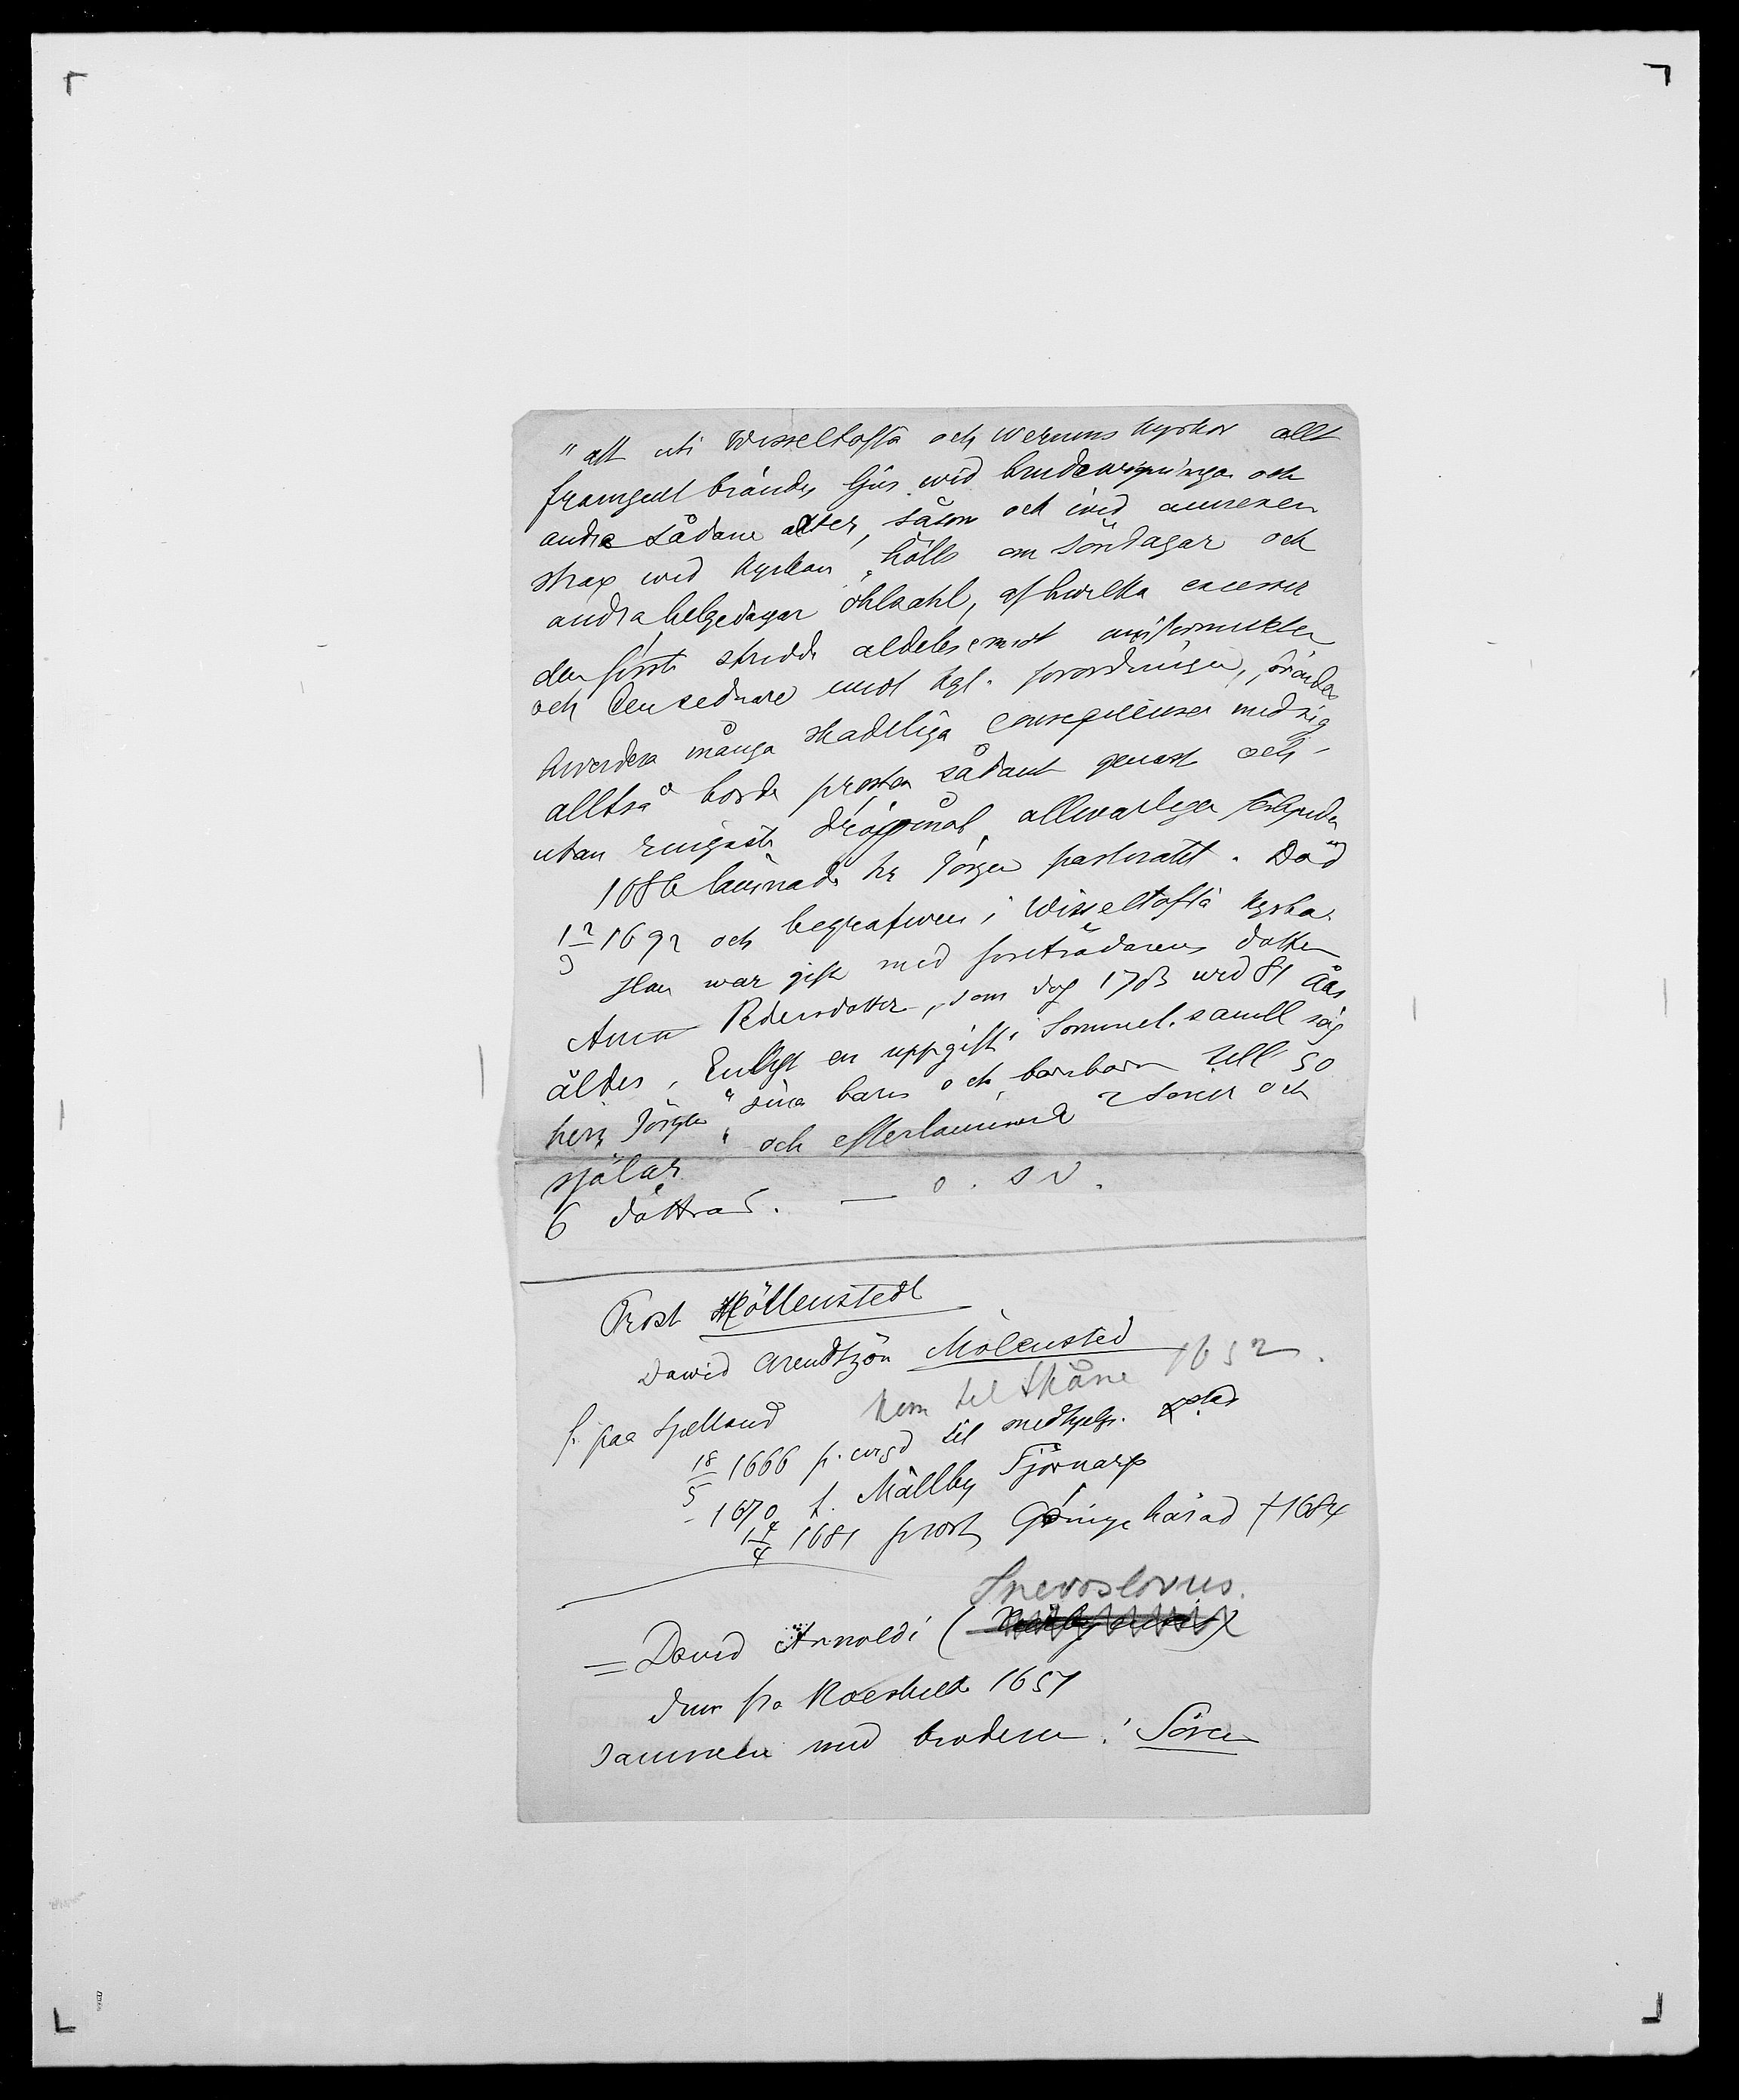 "att uti Wisseltofta och Werums kyrkor allt
framgent brändes ljus wid brudewigningar och
andra sådane akter, såsom och wid annexen
strax wid kyrkan hölls om söndagar och
andra helgedagar öhlsahl, af hwilka excesser
den första stridde aldeles emot
och den sednare emot kgl. förordningar,
hwardera många skadeliga consequenser med sig
alltså borde prosten sådant genast och
utan ringaste dröjsmål allwarligen förbjuda
1686 lämnade hr Jörgen pastoratet. Död
12/3 1692 och begrafwen i Wisseltofta kyrka.
Han war gift med företrädarens dotter
Anna Pedersdotter, som dog 1703 wid 81 års
ålder. Enligt en uppgift i Sommel. samll såg
herr Jörgen "sina barn och barnbarn till 50
själar" och efterlämnade 2 söner och
6 döttrar. — o. s v.
Prost Möllenstedt
Dawid Arendtzön Mölensted
f. paa Sjelland kom til Skåne 1652.
18/5 1666 p. vigd til medhjelp.
- 1670 f. Mällby Tjörnarp
14/4 1681 prost Göinge härad † 1684
Snevoslovus.
= David Arnoldi (
dim fra Roeskilde 1657
sammen med broderen: Sören